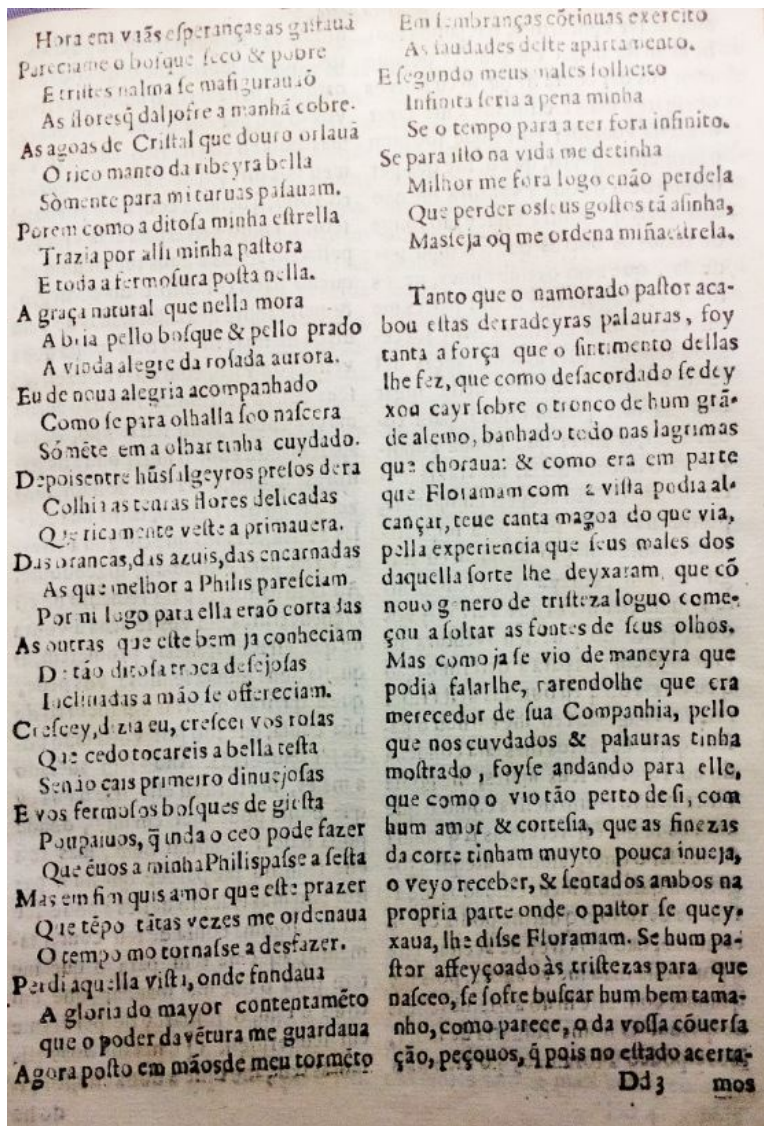 Hora em vaãs esperanças as gastauá
Pareciame o bosque seco & pobre
E tristes nalma se mafigurauaõ
As floresq̃ daljofre a manhã cobre.
As agoas de Cristal que douro orlauã
O rico manto da ribeyra bella
Sòmente para mi turuas pasauam.
Porem como a ditosa minha estrella
Trazia por alli minha pastora
E toda a fermosura posta nella.
A graça natural que nella mora
Abria pello bosque & pello prado
A vinda alegre da rosada aurora.
Eu de noua alegria acompanhado
Como se para olhalla soo nascera
Sómẽte em a olhar tinha cuydado.
Depoisentre hũs salgeyros presos dera
Colhia as tenras flores delicadas
Que ricamente veste a primauera.
Das brancas, das azuis, das encarnadas
As que melhor a Philis paresciam
Por mi logo para ella eraõ cortadas
As outras que este bem ja conheciam
De tão ditosa troca desejosas
Inclinadas a mão se offereciam.
Crescey, dizia eu, crescei vos rosas
Que cedo tocareis a bella testa
Senão cais primeiro dinuejosas
E vos fermosos bosques de giesta
Poupaiuos, q̃ inda o ceo pode fazer
Que ẽuos a minhaPhilispasse a sesta
Mas em fim quis amor que este prazer
Que tẽpo tãtas vezes me ordenaua
O tempo mo tornasse a desfazer.
Perdi aquella vista, onde fundaua
A gloria do mayor contentamẽto
que o poder davẽtura me guardaua
Agora posto em mãosde meu tormẽto
Em lembranças cõtinuas exercito
As saudades deste apartamento.
E segundo meus males sollicito
Infinita seria a pena minha
Se o tempo para a ter fora infinito.
Se para isto na vida me detinha
Milhor me fora logo enão perdela
Que perder osseus gostos tã asinha,
Masseja oq̃ me ordena miñaestrela.
Tanto que o namorado pastor aca-
bou estas derradeyras palauras, foy
tanta a força que o sintimento dellas
lhe fez, que como desacordado se dey
xou cayr sobre o tronco de hum grã-
de alemo, banhado todo nas lagrimas
que choraua: & como era em parte
que Floramam com a vista podia al-
cançar, teue tanta magoa do que via,
pella experiencia que seus males dos
daquella sorte lhe deyxaram, que cõ
nouo genero de tristeza loguo come-
çou a soltar as fontes de seus olhos.
Mas como ja se vio de maneyra que
podia falarlhe, parendolhe que era
merecedor de sua Companhia, pello
que nos cuydados & palauras tinha
mostrado, foyse andando para elle,
que como o vio tão perto de si, com
hum amor & cortesia, que as finezas
da corte tinham muyto pouca inueja,
o veyo receber, & sentados ambos na
propria parte onde o pastor se quey-
xaua, lhe disse Floramam. Se hum pa-
stor affeyçoado às tristezas para que
nasceo, se sofre buscar hum bem tama-
nho, como parece, o da vossa cõuersa
ção, peçouos, q̃ pois no estado acerta-
Dd3 mos